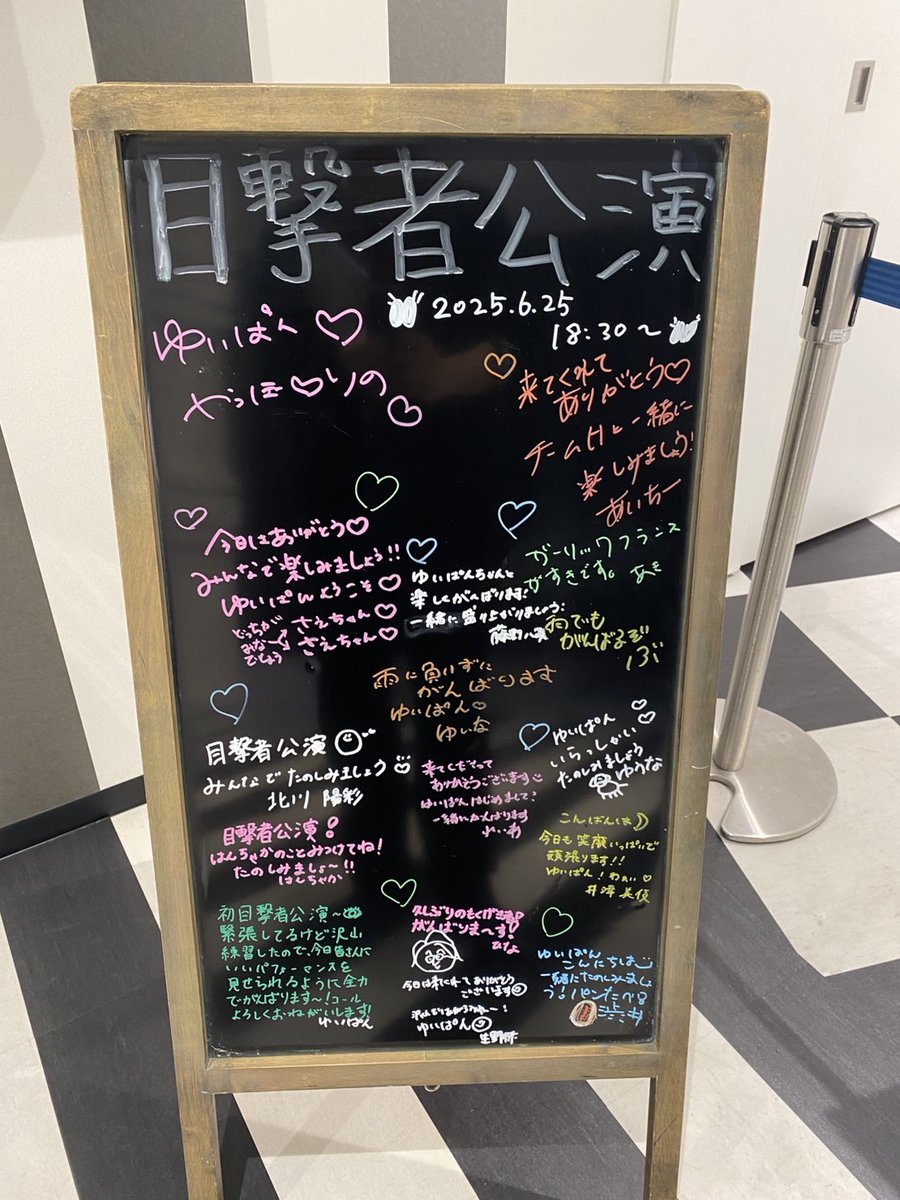 目撃者公演
2025.6.25
18:30～
ゆいぱん♡
やっほ♡りの
来てくれて
ありがとう♡
チームHと一緒に
楽しみましょう!
あいちー
今日はありがとう♡
みんなで楽しみましょう!!
ゆいぱんようこそ♡
どっちが
みな
でしょう
さえちゃん♡
さえちゃん♡
ゆいぱんちゃんと
楽しくがんばります!
一緒に盛り上がりましょう!
ガーリックフランス
がすきです。 あき
雨でも
がんばるぞ
ぶ
雨に負けずに
がんばります
ゆいぱん♡
ゆいな
目撃者公演
みんなでたのしみましょう
北川 陽彩
来てくださって
ありがとうございます
ゆいぱんはじめまして?
一緒にがんばります
れいわ
ゆいぱん
いらっしゃい
たのしみましょう
ゆうな
目撃者公演!
はんちゃかのことみつけてね!
たのしみましょ〜!!
はんちゃか
こんばんは
今日も笑顔いっぱいで
頑張ります!!
ゆいぱん!わぁい♡
井澤美優
初目撃者公演〜
緊張してるけど沢山
練習したので、今日皆さんに
いいパフォーマンスを
見せられるように全力
でがんばります〜!コール
よろしくおねがいします!
ゆいぱん
久しぶりのもくげき者!
がんばりま〜す!
ひなよ
今日は来てくれてありがとう
ございます
ゆいぱん
ゆいぱん
こんにちは
一緒にたのしみましょ
う!パンたべる